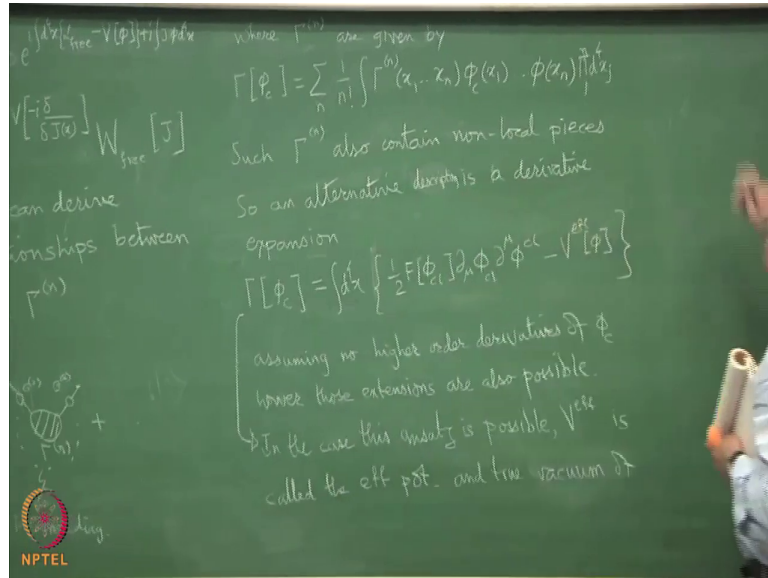 e^{i∫d⁴x{L_free - V[φ]}+i∫Jφd⁴x}
V[-iδ/δJ(x)] W_free [J]
can derive
ionships between
Γ^(n)
Γ^(n)
+
where Γ^(n) are given by
Γ[φ_c] = Σ_n 1/n! ∫ Γ^(n)(x₁...x_n) φ_c(x₁) . φ(x_n) Π_1^n d⁴x_j
Such Γ^(n) also contain non-local pieces
So an alternative is a derivative
expansion
Γ[φ_c] = ∫d⁴x { 1/2 F[φ_cl] ∂_μ φ_cl ∂^μ φ^cl - V^eff[φ] }
assuming no higher order derivatives of φ_c
hower those extensions are also possible.
In the case this ansatz is possible, V^eff is
called the eff pot. and true vacuum of
NPTEL